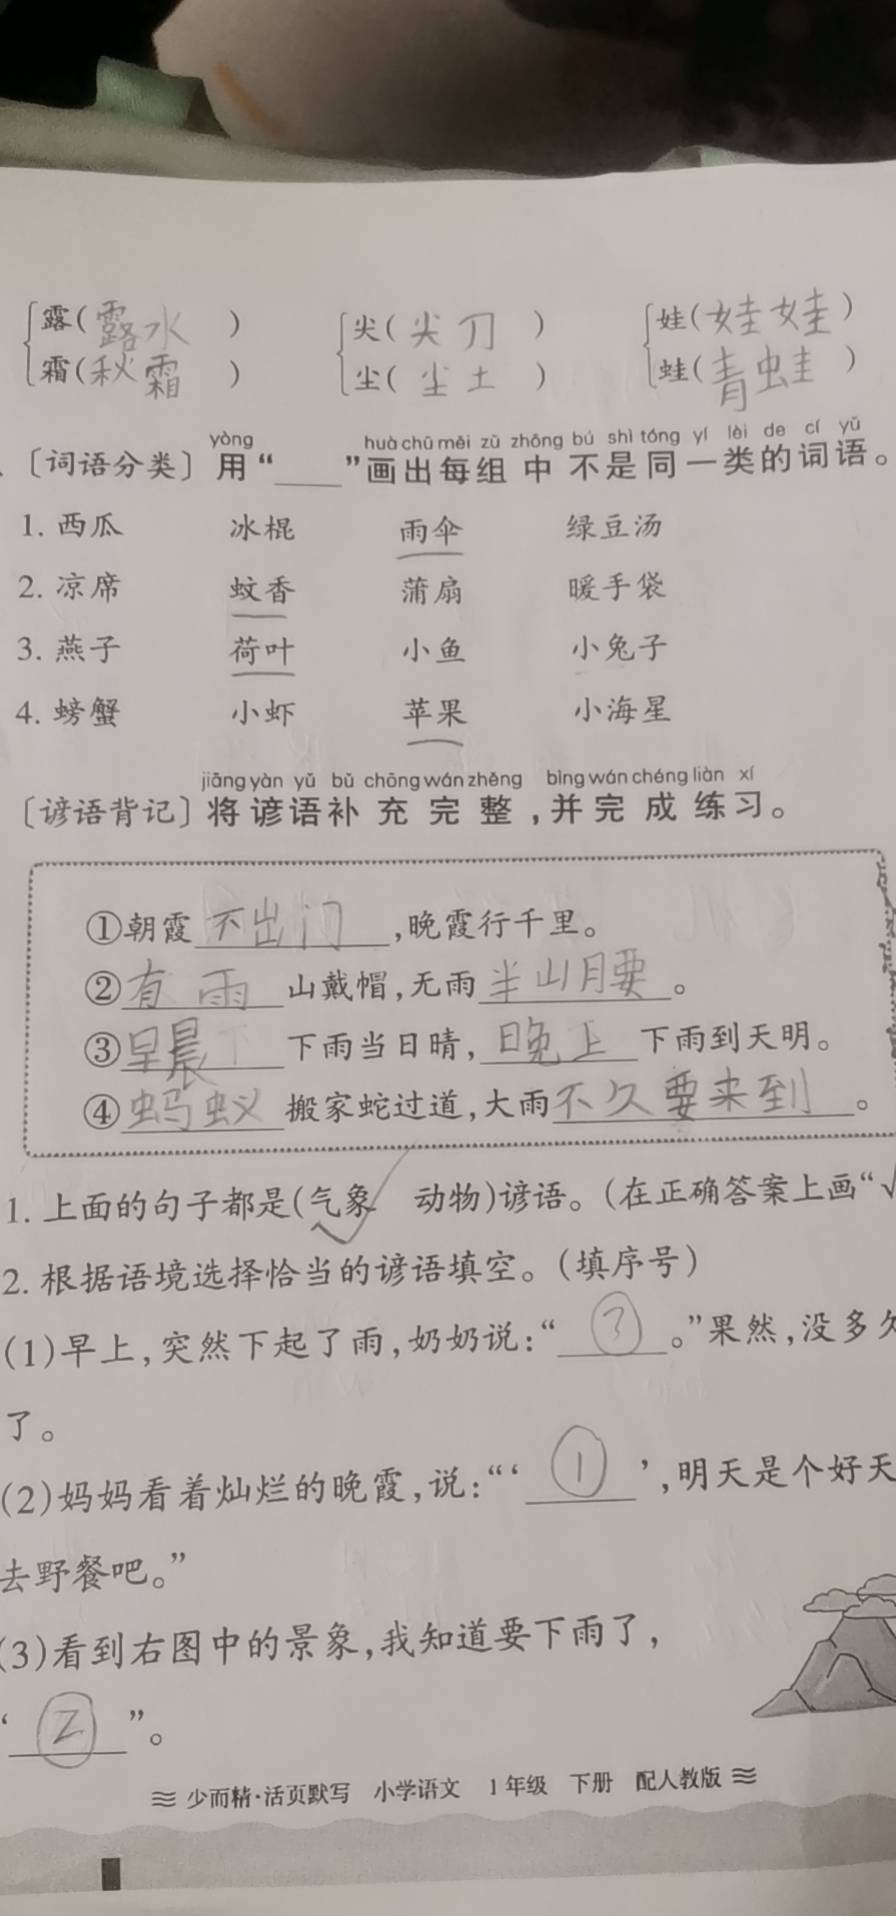 露(露水)　尖(尖刀)　娃(娃娃)
霜(秋霜)　尘(尘土)　蛙(青蛙)
yòng　huà chū měi zǔ zhōng bú shì tóng yí lèi de cí yǔ
〔词语分类〕用“____”画出每组中不是同一类的词语。
1. 西瓜　冰棍　雨伞　绿豆汤
2. 凉席　蚊香　蒲扇　暖手袋
3. 燕子　荷叶　小鱼　小兔子
4. 螃蟹　小虾　苹果　小海星
jiāng yàn yǔ bǔ chōng wán zhěng　bìng wán chéng liàn xí
〔谚语背记〕将谚语补充完整,并完成练习。
①朝霞不出门,晚霞行千里。
②有雨山戴帽,无雨半山腰。
③早晨下雨当日晴,晚上下雨到天明。
④蚂蚁搬家蛇过道,大雨不久要来到。
1. 上面的句子都是(气象　动物)谚语。(在正确答案上画“√
2. 根据语境选择恰当的谚语填空。(填序号)
(1)早上,突然下起了雨,奶奶说:“③。”果然,没多久
了。
(2)妈妈看着灿烂的晚霞,说:“‘①’,明天是个好天
去野餐吧。”
(3)看到右图中的景象,我知道要下雨了,
“②”。
少而精·活页默写　小学语文　1年级　下册　配人教版